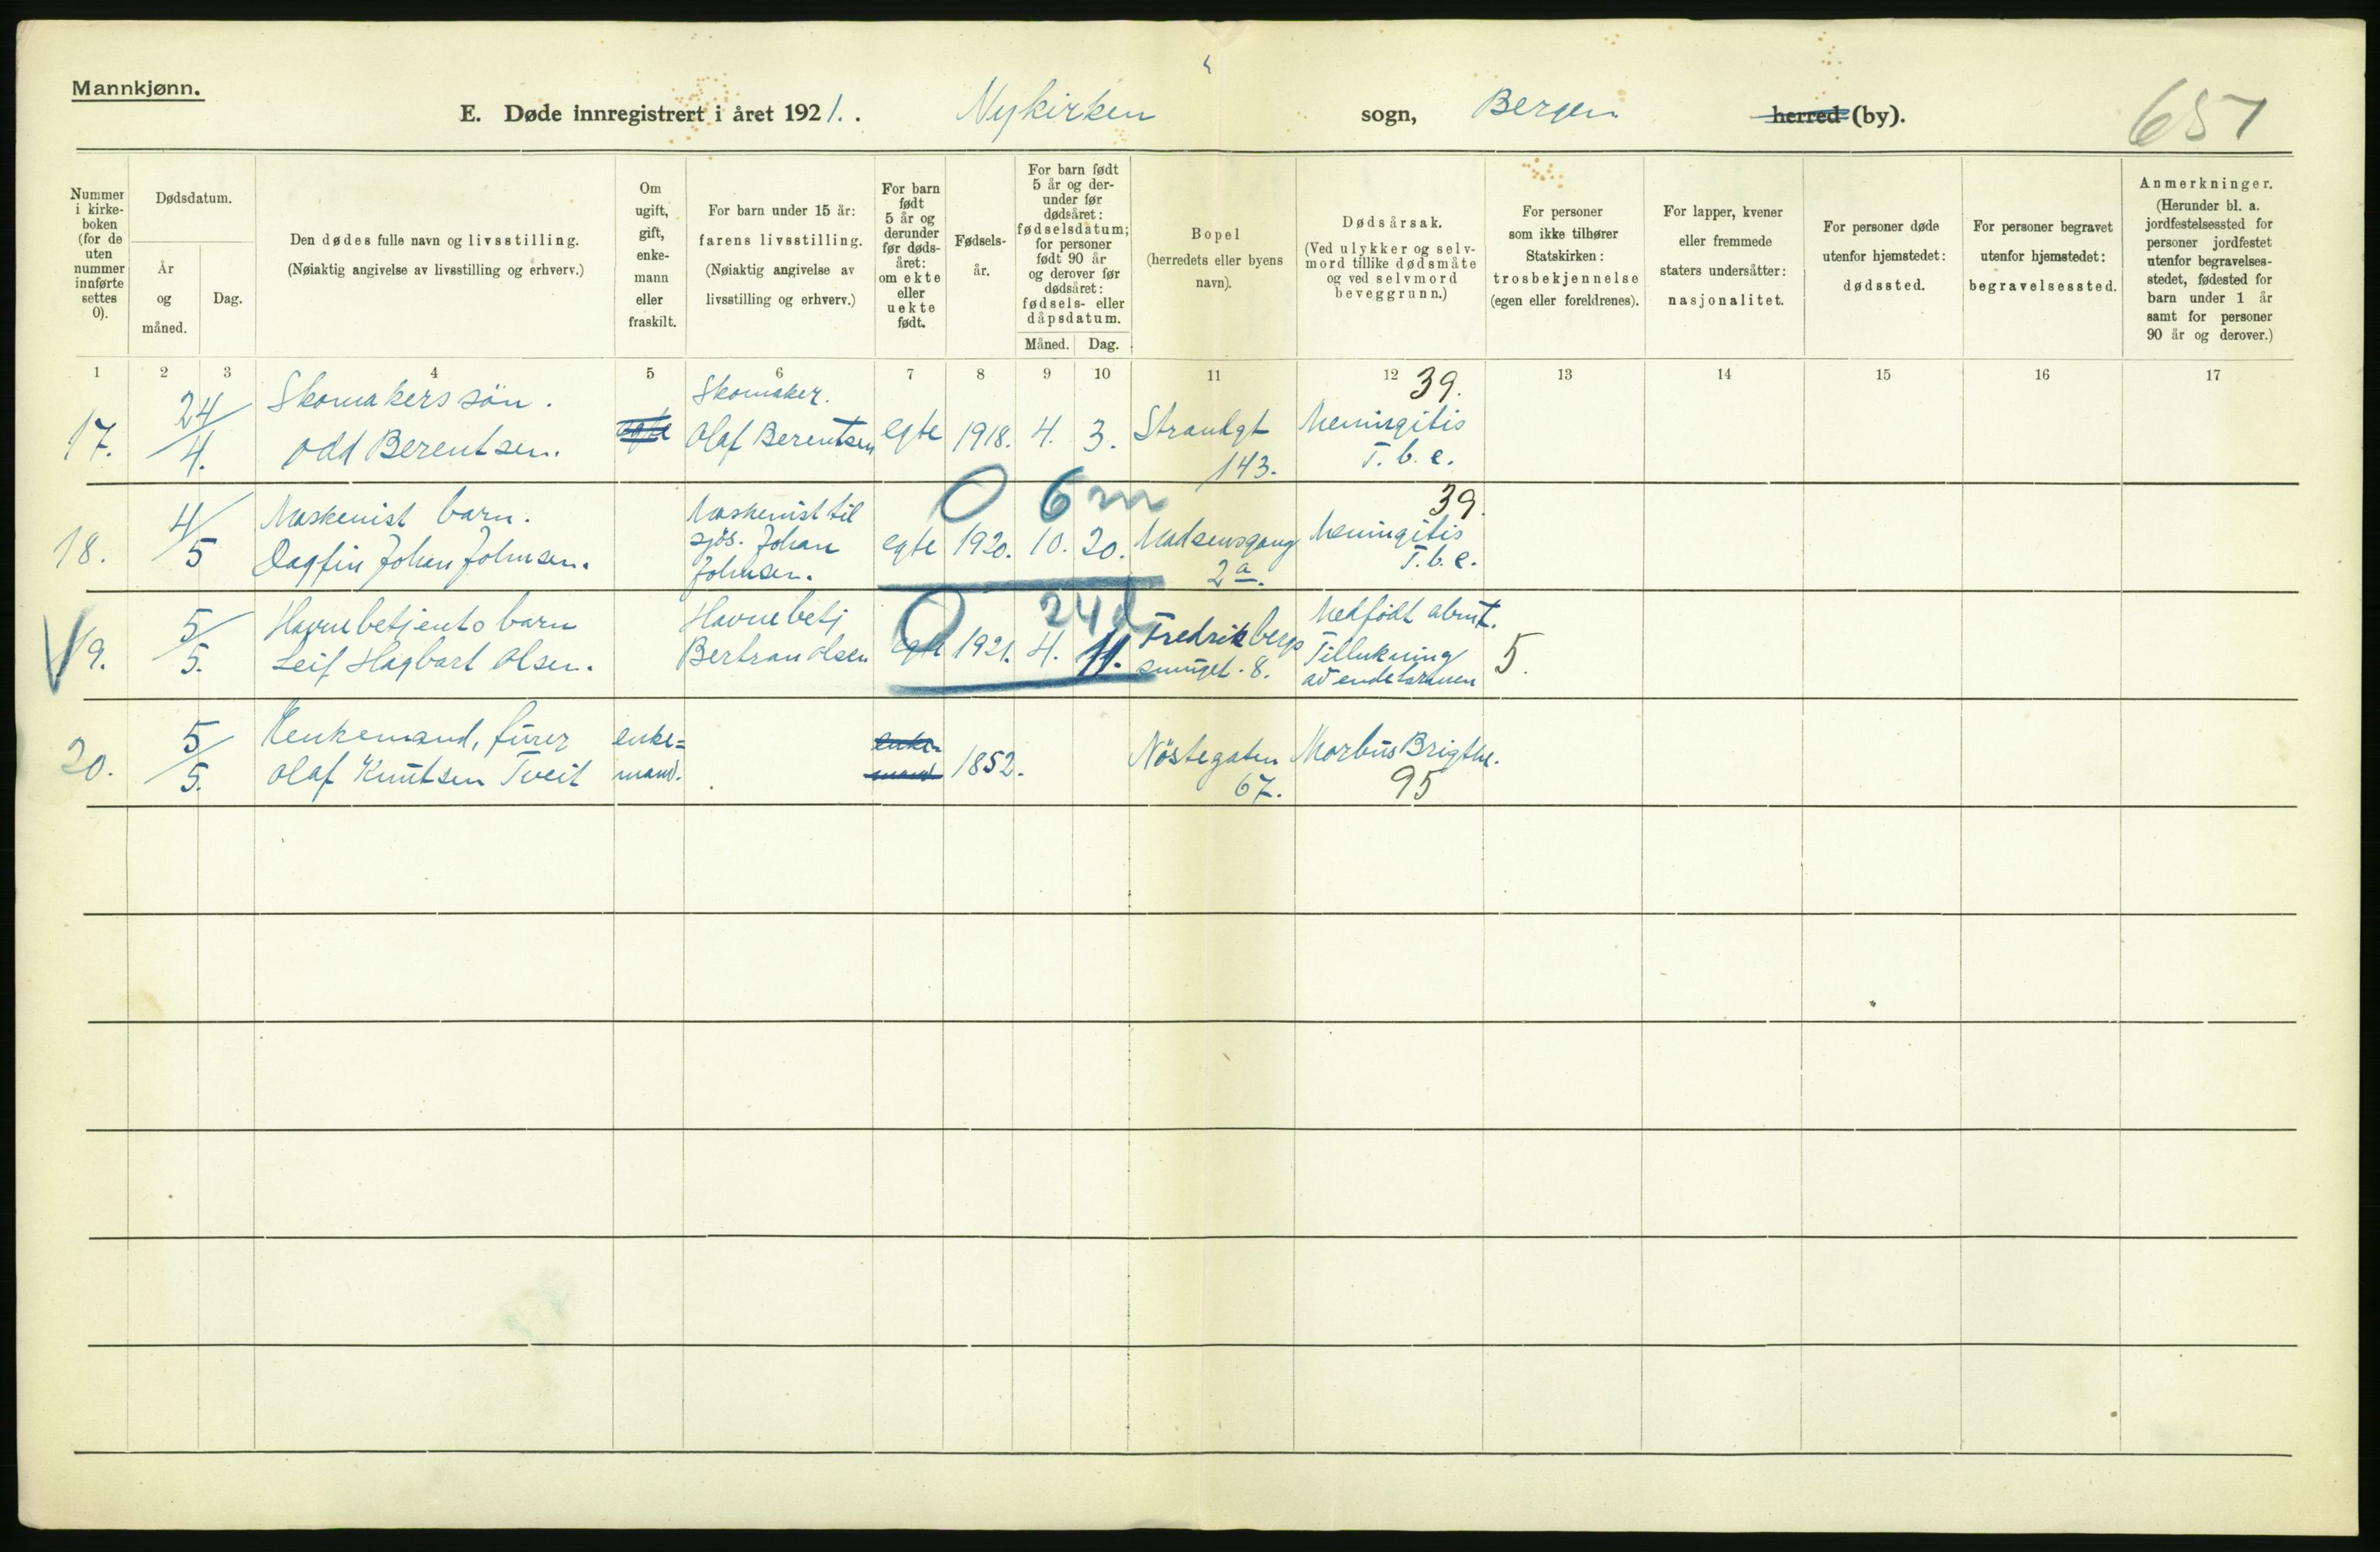 Mannkjønn.
E. Døde innregistrert i året 1921. . Nykirken sogn, Bergen herred (by).
657
Nummer i kirke- boken (for de uten nummer innførte settes 0).
Dødsdatum.
År og måned.
Dag.
Den dødes fulle navn og livsstilling.
(Nøiaktig angivelse av livsstilling og erhverv.)
Om ugift, gift, enke- mann eller fraskilt.
For barn under 15 år:
farens livsstilling.
(Nøiaktig angivelse av
livsstilling og erhverv.)
For barn født 5 år og derunder før døds- året: om ekte eller uekte født.
Fødsels- år.
For barn født 5 år og der- under før dødsåret: fødselsdatum; for personer født 90 år og derover før dødsåret: fødsels- eller dåpsdatum.
Måned. Dag.
Bopel
(herredets eller byens navn).
Dødsårsak.
(Ved ulykker og selv- mord tillike dødsmåte og ved selvmord beveggrunn.)
For personer som ikke tilhører Statskirken: trosbekjennelse (egen eller foreldrenes).
For lapper, kvener eller fremmede staters undersåtter: nasjonalitet.
For personer døde utenfor hjemstedet: dødssted.
For personer begravet utenfor hjemstedet: begravelsessted.
Anmerkninger.
(Herunder bl. a. jordfestelsessted for personer jordfestet utenfor begravelses- stedet, fødested for barn under 1 år samt for personer 90 år og derover.)
1 2 3 4 5 6 7 8 9 10 11 12 13 14 15 16 17
Skomakers søn. Skomaker. 39.
17. 24/4. Odd Berentsen. egte Olaf Berentsen egte 1918. 4. 3. Strandgt Meningitis
143. T. b. c.
0 6 m 39.
Maskenist barn. Maskenist til
18. 4/5 Dagfin Johan Johnsen. sjös. Johan egte 1920. 10. 20. Madsensgang Meningitis
Johnsen. 2a. T. b. c.
0 24d
Havnebetjents barn Havnebetj Fredriksbergs Medfödt
19. 5/5. Leif Hagbart Olsen. Bertran Olsen egte 1921. 4. 11. smuget. 8. Tillukning 5.
av endetarmen
20. 5/5. enke= enke- Nöstegaten Morbus Brigthi.
Olaf Knutsen Tveit mand. mand 1852. 67. 95